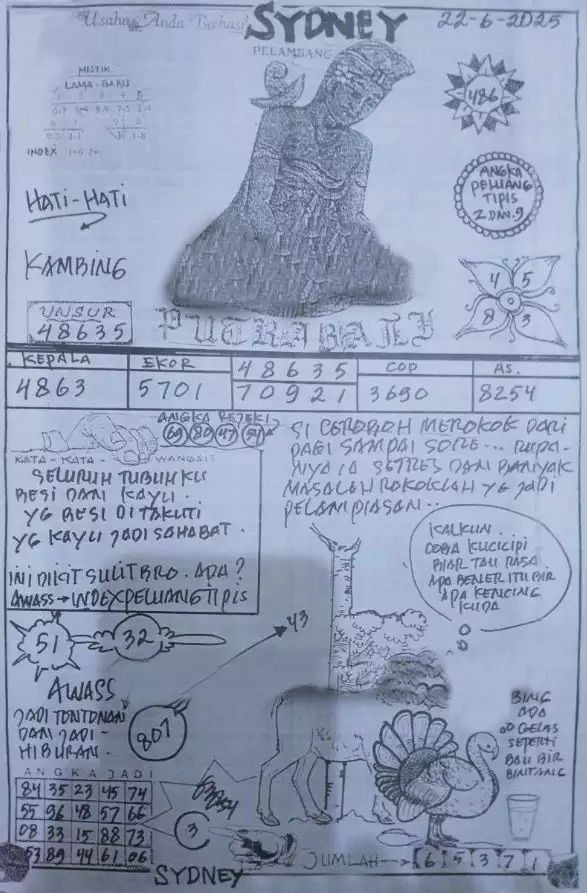 Usaha Anda Berhasil
SYDNEY
22-6-2025
PELAMBANG
MISTIK
LAMA BARU
INDEX
486
HATI-HATI
ANGKA
PELUANG
TIPIS
2 DAN 9
KAMBING
4 5
8 3
UNSUR
48635
PUTRABALI
KEPALA
EKOR
48635
COP
AS.
4863
5701
70921
3690
8254
ANGKA REJEKI
69 80 47 51
KATA - KATA - WANGSIT
SELURUH TUBUHKU
BESI DAN KAYU.
YG BESI DITAKUTI
YG KAYU JADI SAHABAT.
INI DIKIT SULIT BRO. ADA?
AWASS → INDEX PELUANG TIPIS
SI CEROBOH MEROKOK DARI
PAGI SAMPAI SORE... RUPA-
NYA IA SETRES DAN BANYAK
MASALAH ROKOKLAH YG JADI
PELAMPIASAN..
KALKUN.
COBA KUCICIPI
BIAR TAU RASA.
APA BENER ITU BIR
APA KENCING
KUDA
51
32
43
AWASS
JADI TONTONAN
DAN JADI-
HIBURAN.
807
BING
ADA
GELAS
SEPERTI
BAU BIR
BINTANG
ANGKA JADI
84 35 23 45 74
55 96 48 57 66
08 33 15 88 73
53 89 44 61 06
3
JUMLAH → 65371
SYDNEY